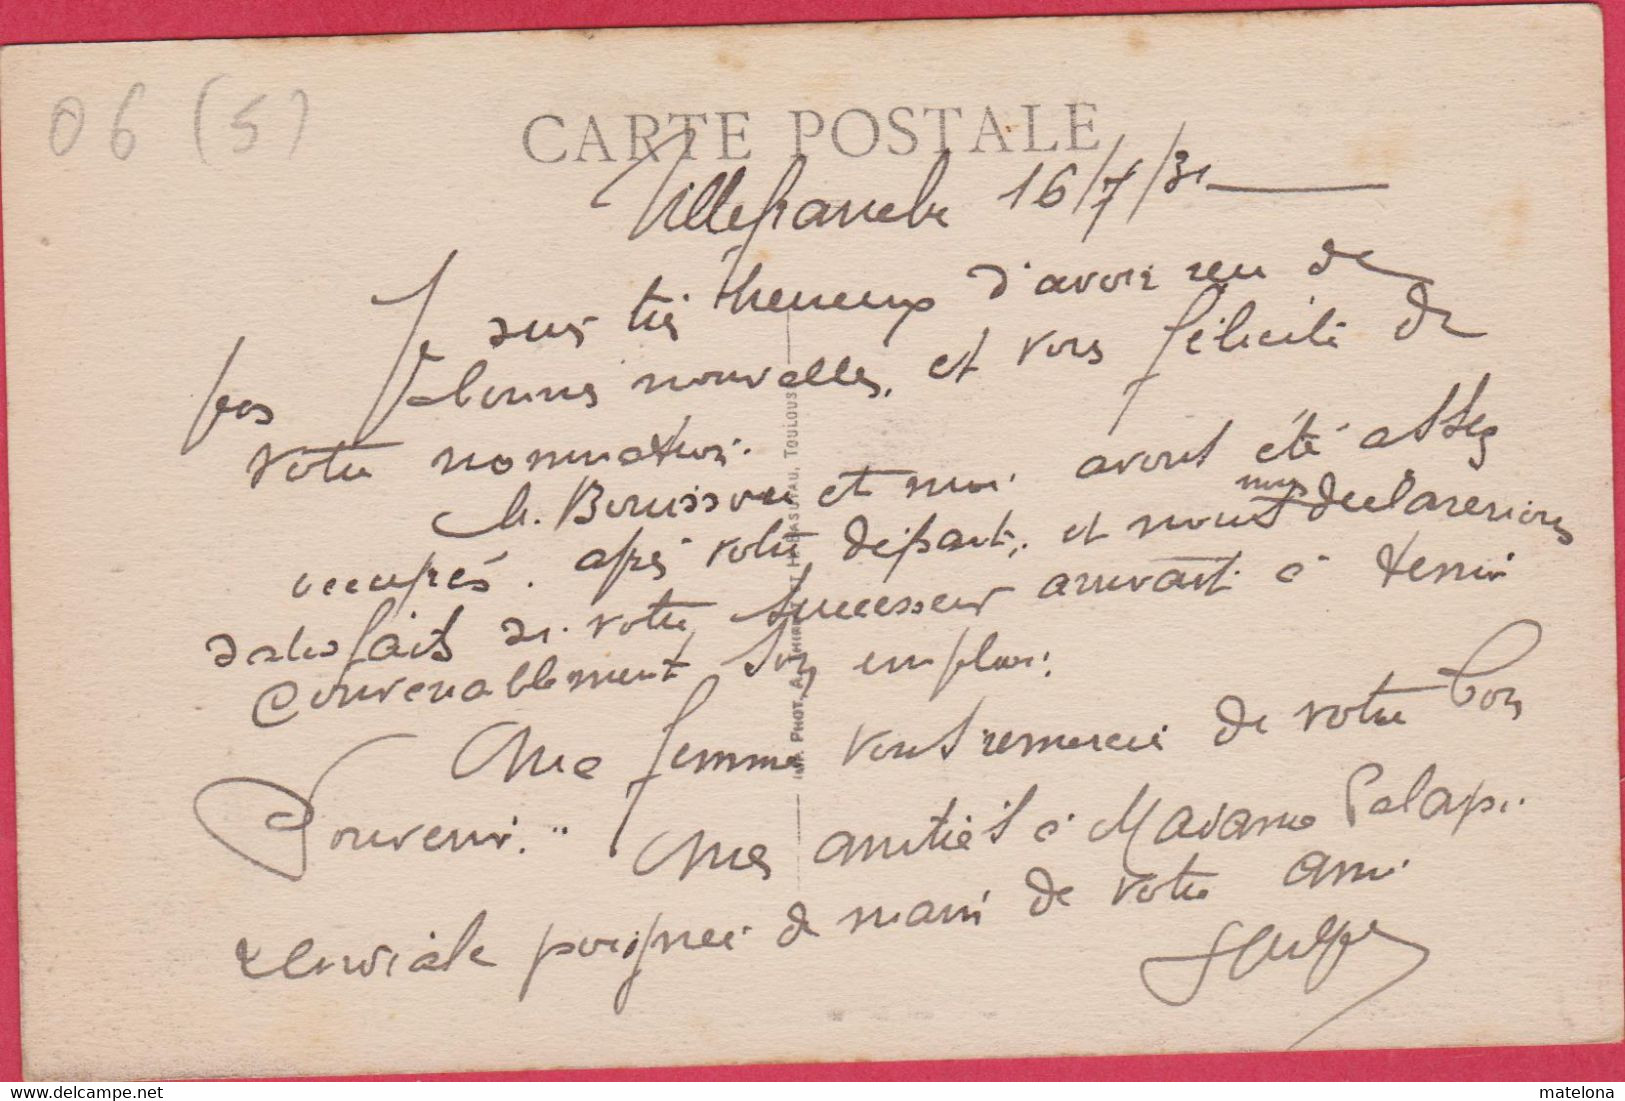 06 (5)
CARTE POSTALE
Villefranche 16/7/31
Je suis très heureux d'avoir reu de
vos bonnes nouvelles, et vous félicite de
votre nomination.
M. Bouissou et moi avons été assez
occupés. après votre départ, et nous nous declarerions
satisfaits si votre successeur arrivait à tenir
convenablement son emploi.
Ma femme vous remercie de votre bon
souvenir.
Mes amitiés à Madame Palapi.
cordiale poignée de main de votre ami
IMP. PHOT. A. THIRIAT TOULOUSE
matelona